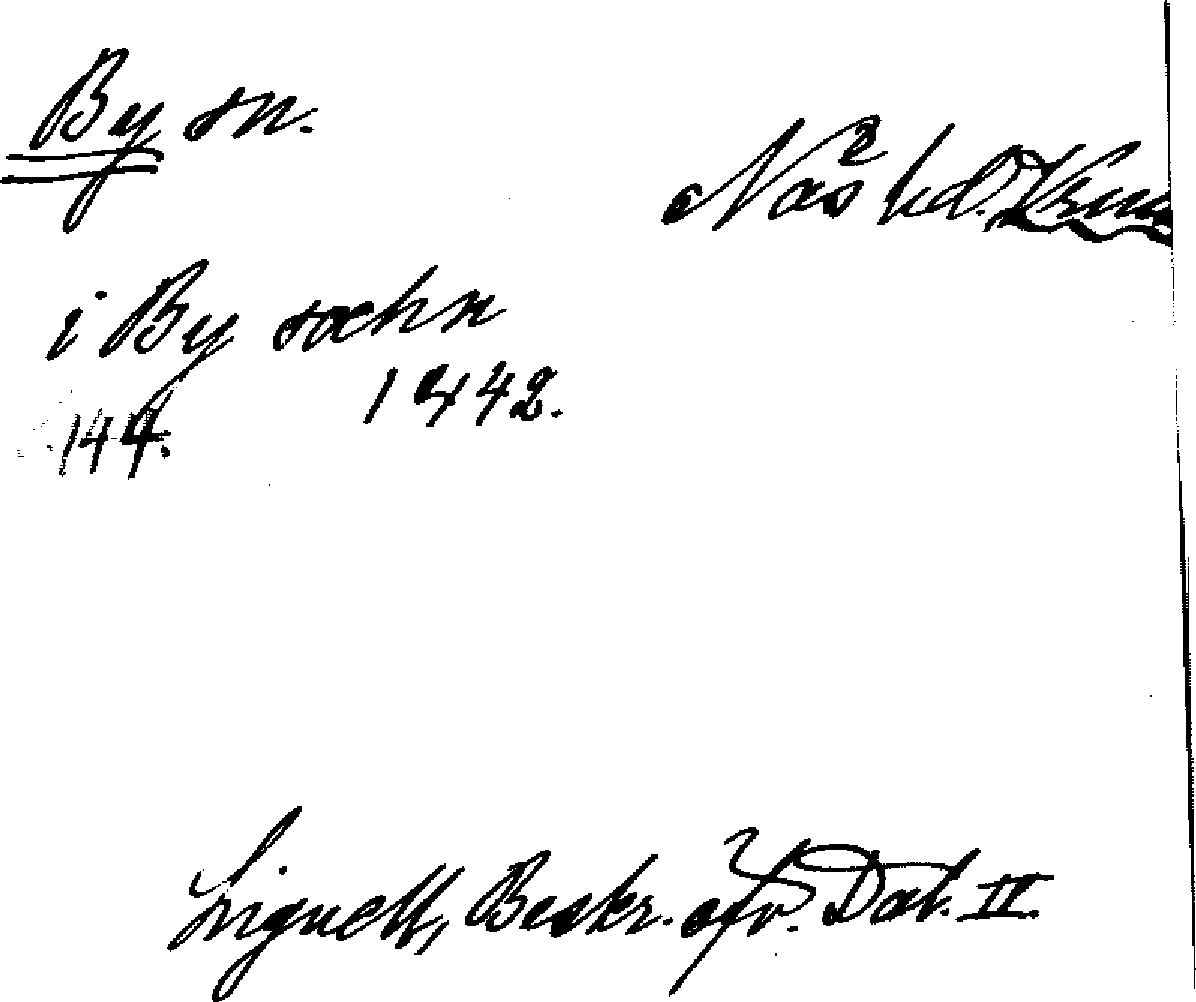 By sn.
Näs hd.
i By sochn
1442.
144.
Lignell, Beskr. öfv. Dal. II.